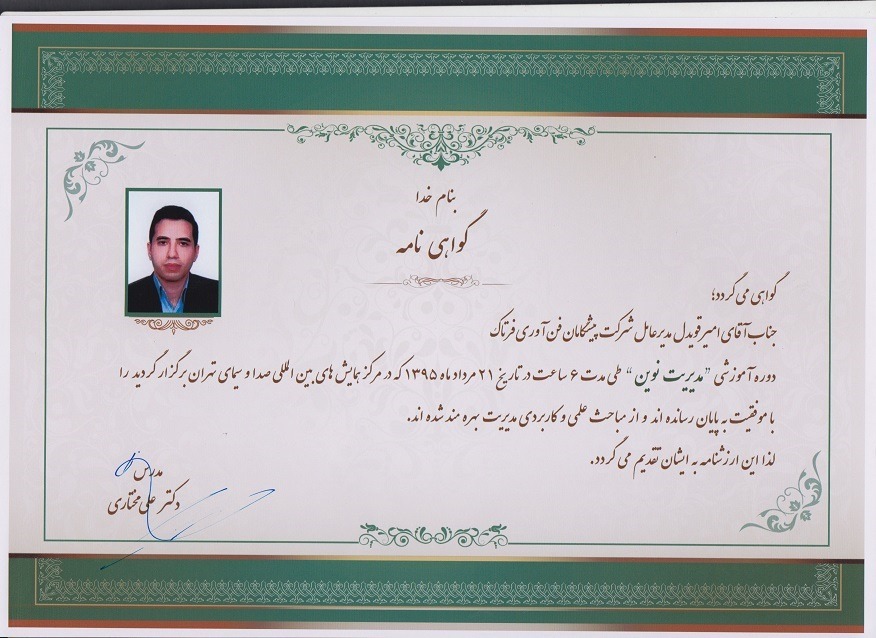 بنام خدا
گواهی نامه
گواهی می گردد؛
جناب آقای امیر قویدل مدیرعامل شرکت پیشگامان فن آوری فرتاک
دوره آموزشی "مدیریت نوین" طی مدت ۶ ساعت در تاریخ ۲۱ مرداد ماه ۱۳۹۵ که در مرکز همایش های بین المللی صدا و سیمای تهران برگزار گردید را
با موفقیت به پایان رسانده اند و از مباحث علمی و کاربردی مدیریت بهره مند شده اند.
لذا این ارزشنامه به ایشان تقدیم می گردد.
مدرس
دکتر علی مختاری